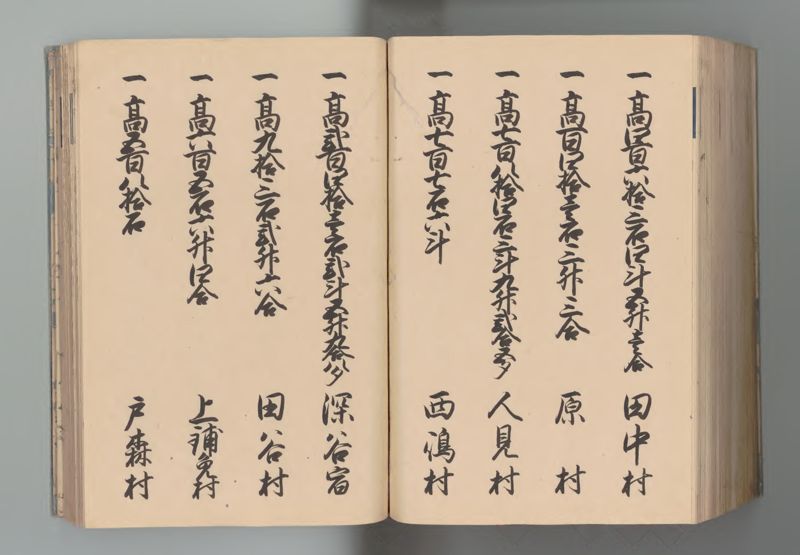 一 高四百六拾三石四斗五升壱合 田中村
一 高百四拾壱石三升三合 原村
一 高七百八拾四石三斗九升弐合五夕 人見村
一 高七百七石六斗 西嶋村
一 高弐百四拾壱石弐斗五升九合八夕 深谷宿
一 高九拾三石弐升六合 田谷村
一 高六百五石六升四合 上鋪免村
一 高五百八拾石 戸森村